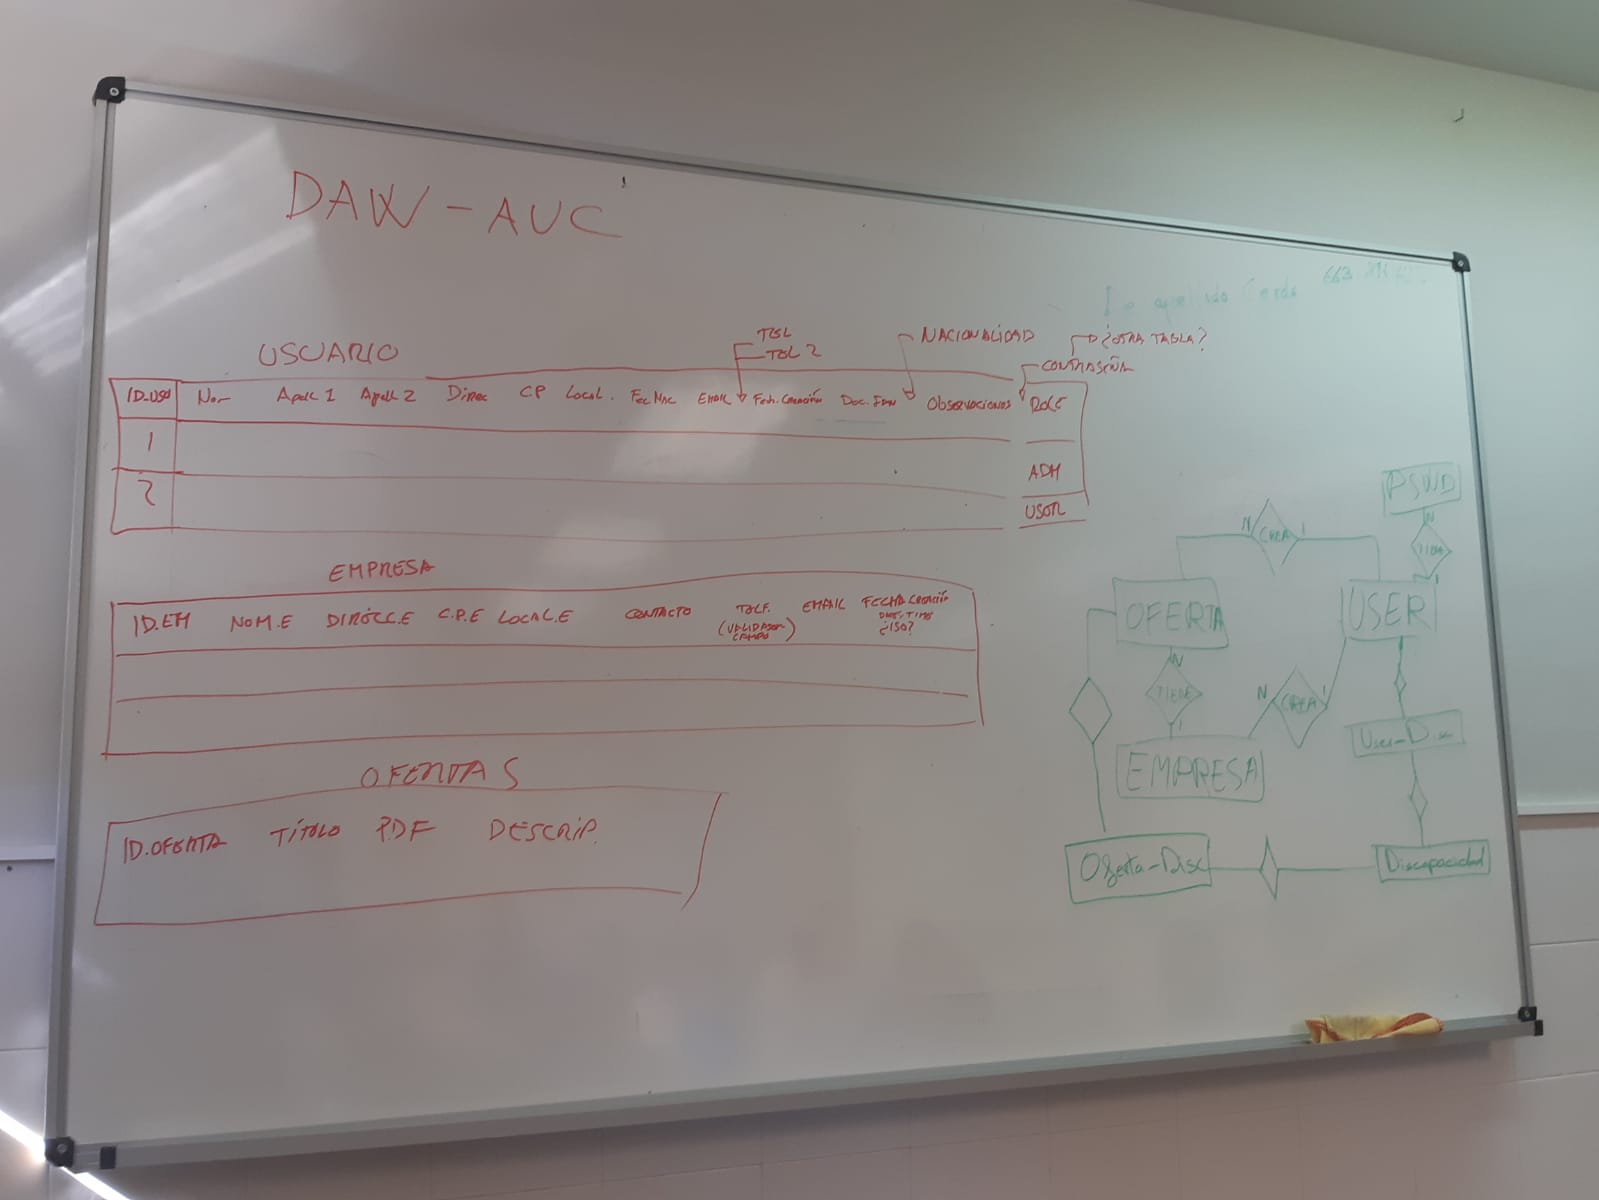 DAW-AUC
USUARIO
TEL
TEL 2
NACIONALIDAD
¿OTRA TABLA?
CONTRASEÑA
ID-USU Nom Apell 1 Apell 2 Direc CP Local. Fec Nac Email Fech. Creación Doc. Iden Observaciones ROLE
1
ADM
2
USER
EMPRESA
ID.EM NOM.E DIRECC.E C.P.E LOCAL.E CONTACTO TELF. EMAIL FECHA CREACIÓN
(VALIDADOR CAMPO) DATE, TIME ¿ISO?
OFERTAS
ID.OFERTA TÍTULO PDF DESCRIP.
PSWD
N
TIENE
1
N CREA 1
OFERTA
USER
N
TIENE
1
N CREA 1
EMPRESA
User-Disc
Oferta-Disc
Discapacidad